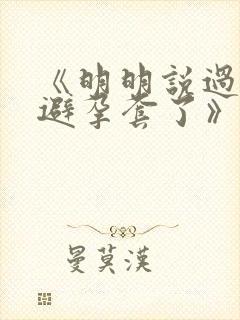 《明明說過
避孕套了》
曼莫漢